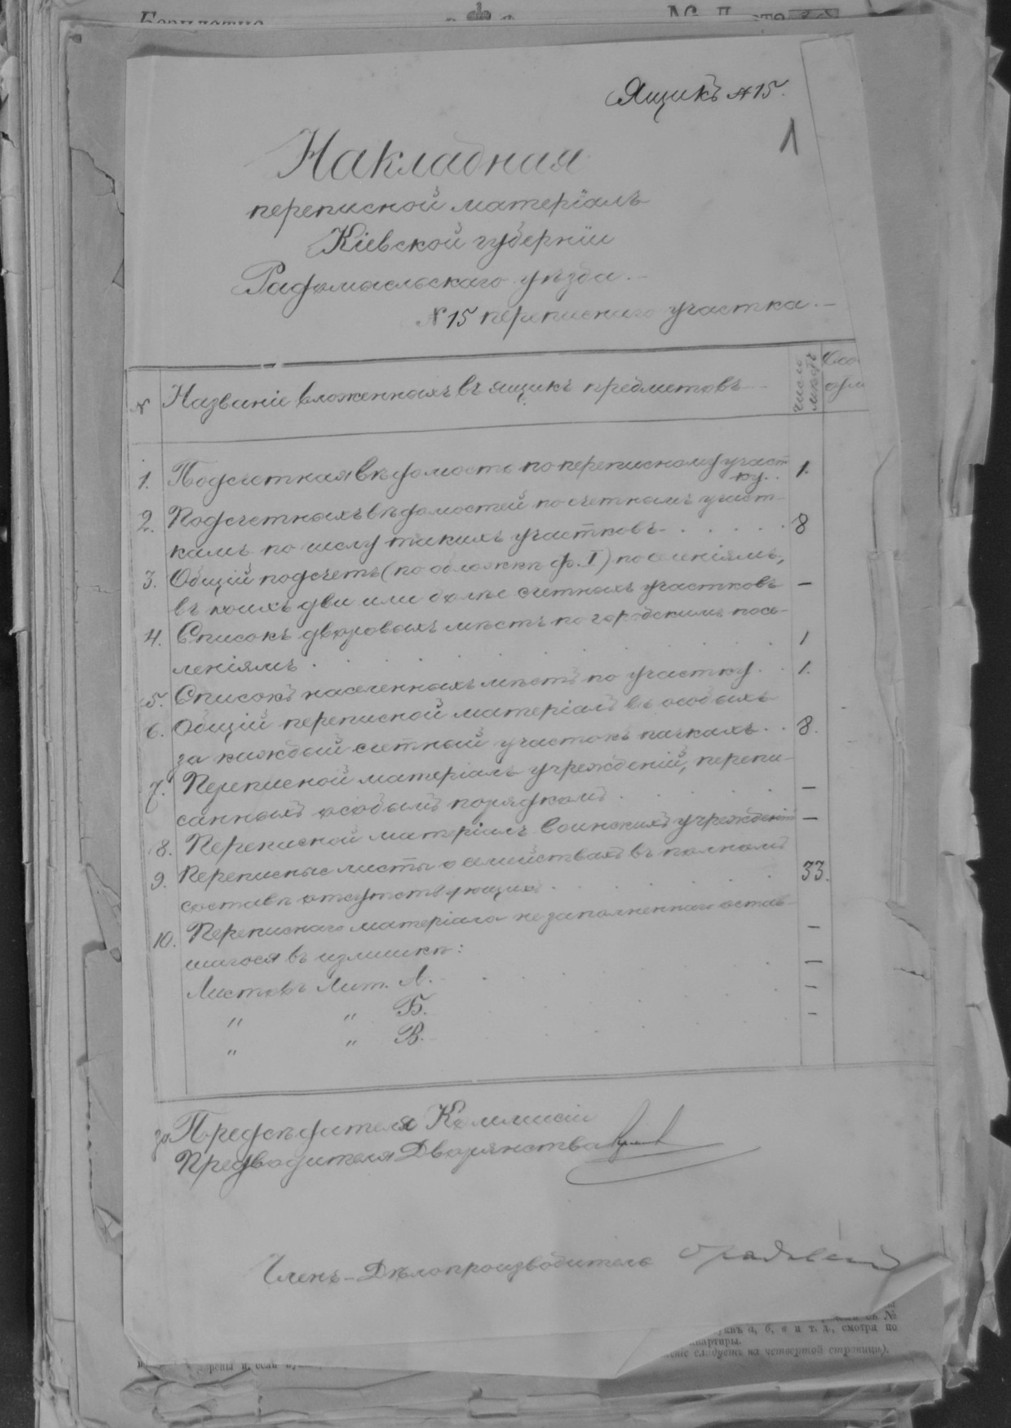 Ящикъ №15.
1
Накладная
переписной матеріалъ
Кіевской губерніи
Радомысльскаго уѣзда.
№15 переписнаго участка.
№ Названіе вложенныхъ въ ящикъ предметовъ число
1. Подсчетная вѣдомость по переписному участ
ку. 1.
2. Подсчетныхъ вѣдомостей по счетнымъ участ-
камъ по числу такихъ участковъ 8
3. Общій подсчетъ (по обложкѣ ф. I) поселеніямъ,
въ коихъ два или болѣе счетныхъ участковъ –
4. Списокъ дворовыхъ мѣстъ по городскимъ посе-
леніямъ 1
5. Списокъ населенныхъ мѣстъ по участку 1.
6. Общій переписной матеріалъ въ особыхъ
за каждый счетный участокъ пачкахъ 8.
7. Переписной матеріалъ учрежденій, перепи-
санныхъ особымъ порядкомъ –
8. Переписной матеріалъ воинскихъ учрежденій –
9. Переписные листы о семействахъ въ полномъ
составѣ отсутствующихъ 33.
10. Переписного матеріала не заполненнаго остав
шагося въ излишкѣ: –
Листовъ Лит. А. –
" " Б. –
" " В. –
за Предсѣдателя Коммисіи
Предводителя Дворянства
Членъ-Дѣлопроизводитель